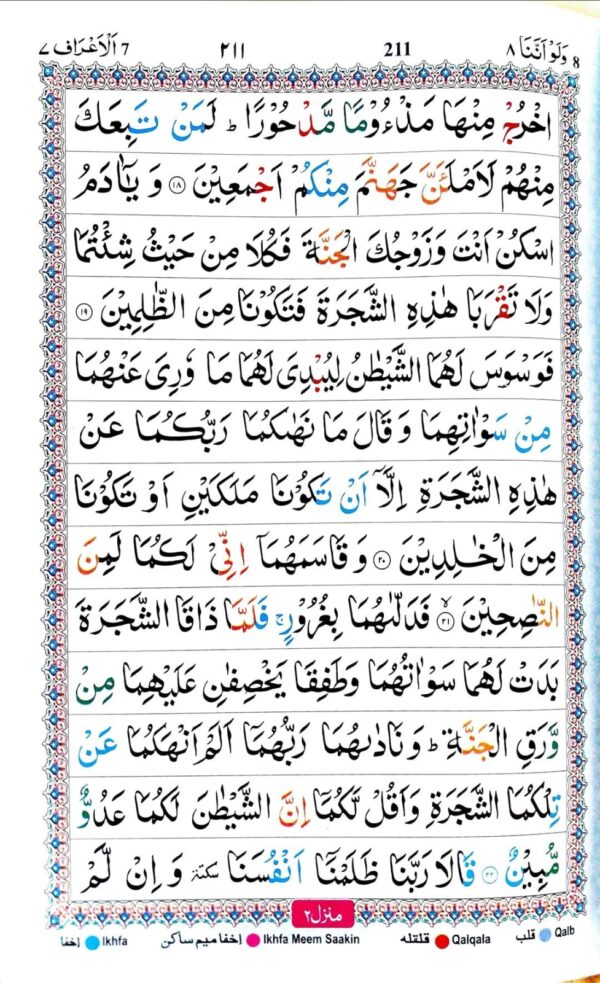 ٨ وَلَوْ اَنَّنَا ٨ 211 ٢١١ اَلْاَعْرَاف ٧ 7
اخْرُجْ مِنْهَا مَذْءُوْمًا مَّدْحُوْرًا ؕ لَمَنْ تَبِعَكَ
مِنْهُمْ لَاَمْلَـَٔنَّ جَهَنَّمَ مِنْكُمْ اَجْمَعِيْنَ ۝۱۸ وَ يٰۤاٰدَمُ
اسْكُنْ اَنْتَ وَزَوْجُكَ الْجَنَّةَ فَكُلَا مِنْ حَيْثُ شِئْتُمَا
وَلَا تَقْرَبَا هٰذِهِ الشَّجَرَةَ فَتَكُوْنَا مِنَ الظّٰلِمِيْنَ ۝۱۹
فَوَسْوَسَ لَهُمَا الشَّيْطٰنُ لِيُبْدِیَ لَهُمَا مَا وٗرِیَ عَنْهُمَا
مِنْ سَوْاٰتِهِمَا وَ قَالَ مَا نَهٰىكُمَا رَبُّكُمَا عَنْ
هٰذِهِ الشَّجَرَةِ اِلَّاۤ اَنْ تَكُوْنَا مَلَكَيْنِ اَوْ تَكُوْنَا
مِنَ الْخٰلِدِيْنَ ۝۲۰ وَ قَاسَمَهُمَاۤ اِنِّیْ لَكُمَا لَمِنَ
النّٰصِحِيْنَ ۝۲۱ۙ فَدَلّٰىهُمَا بِغُرُوْرٍ ۚ فَلَمَّا ذَاقَا الشَّجَرَةَ
بَدَتْ لَهُمَا سَوْاٰتُهُمَا وَطَفِقَا يَخْصِفٰنِ عَلَيْهِمَا مِنْ
وَّرَقِ الْجَنَّةِ ؕ وَ نَادٰىهُمَا رَبُّهُمَاۤ اَلَمْ اَنْهَكُمَا عَنْ
تِلْكُمَا الشَّجَرَةِ وَاَقُلْ لَّكُمَاۤ اِنَّ الشَّيْطٰنَ لَكُمَا عَدُوٌّ
مُّبِيْنٌ ۝۲۲ قَالَا رَبَّنَا ظَلَمْنَاۤ اَنْفُسَنَا سکتہ وَ اِنْ لَّمْ
منزل ٢
قلب Qalb قلقلہ Qalqala اِخفا میم ساکن Ikhfa Meem Saakin اِخفا Ikhfa